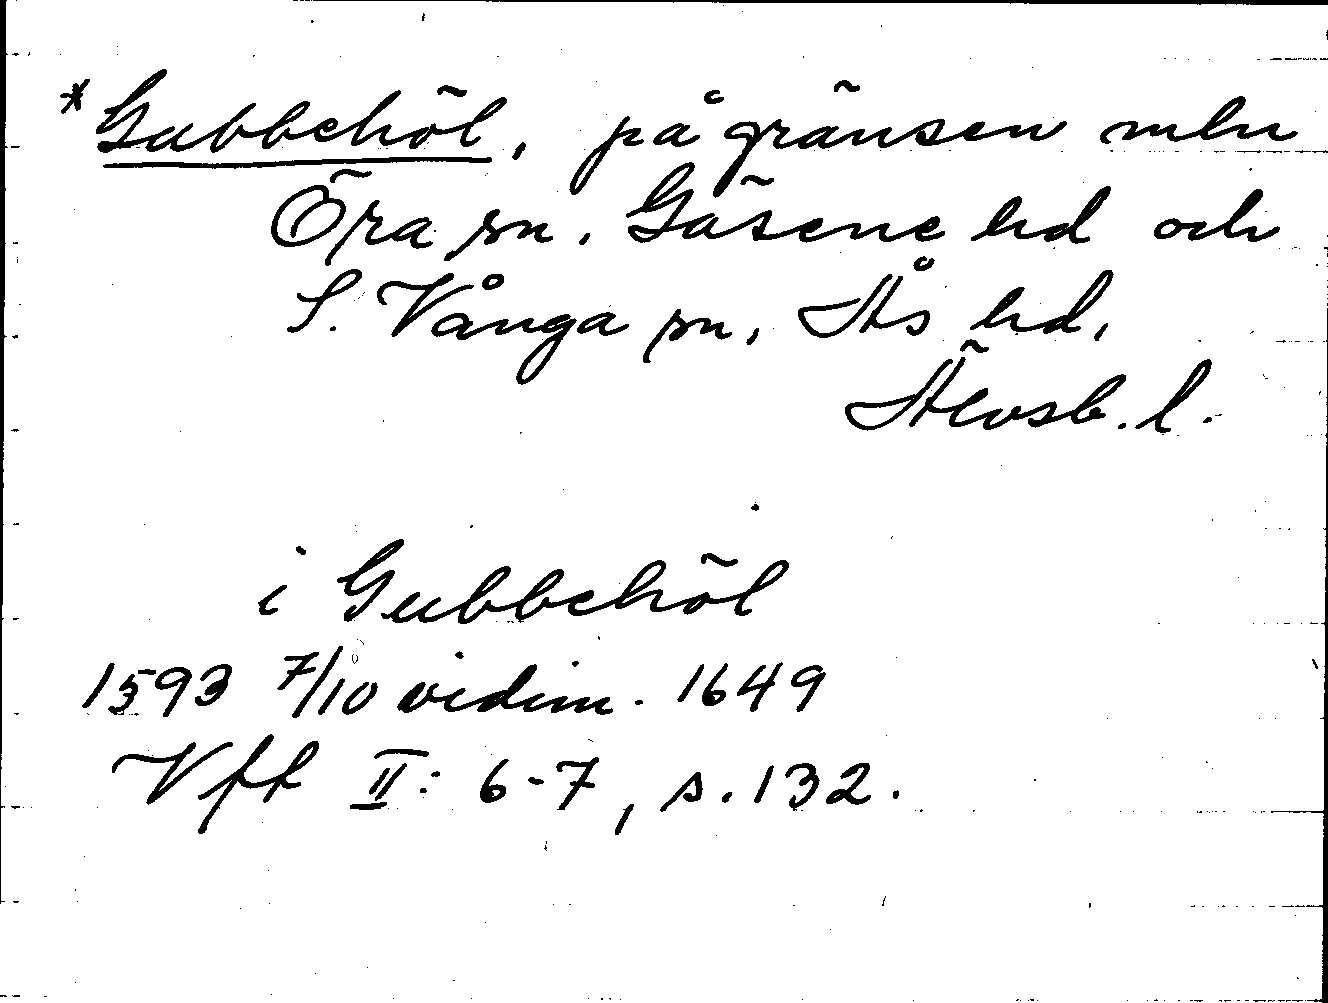 *Gubbehöl, på gränsen mln
Öra sn. Gäsene hd och
S. Vånga sn, Ås hd,
Älvsb. l.
i Gubbehöl
1593 7/10 vidim. 1649
Vft II: 6-7, s. 132.